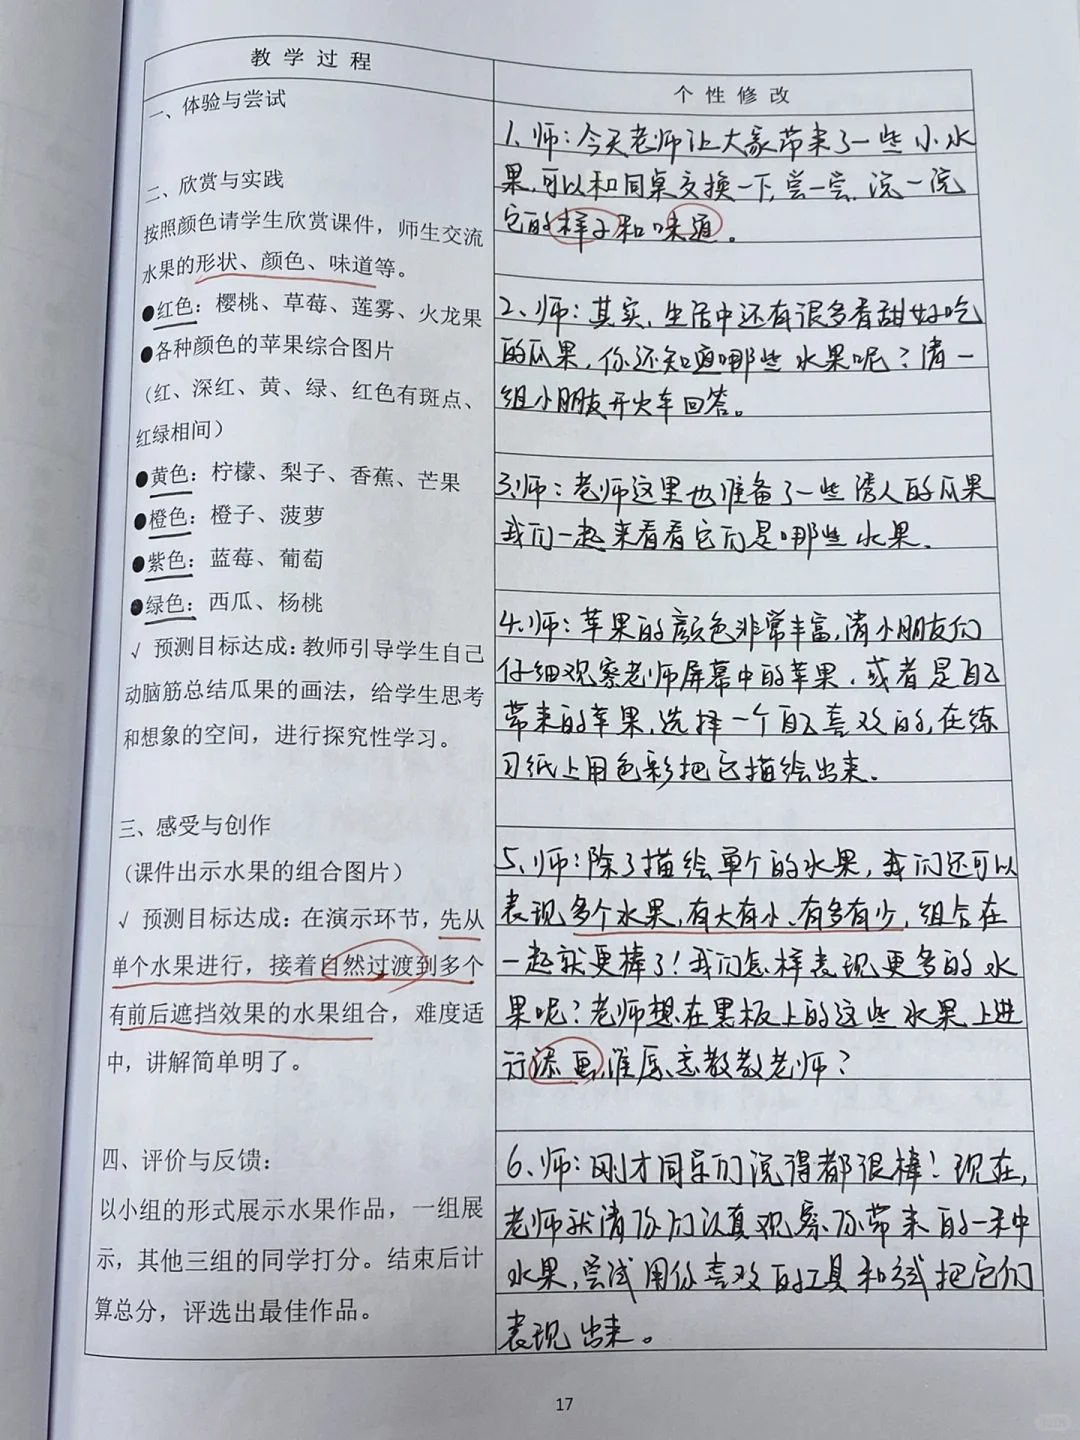 教学过程
一、体验与尝试
二、欣赏与实践
按照颜色请学生欣赏课件，师生交流
水果的形状、颜色、味道等。
●红色：樱桃、草莓、莲雾、火龙果
●各种颜色的苹果综合图片
（红、深红、黄、绿、红色有斑点、
红绿相间）
●黄色：柠檬、梨子、香蕉、芒果
●橙色：橙子、菠萝
●紫色：蓝莓、葡萄
●绿色：西瓜、杨桃
√ 预测目标达成：教师引导学生自己
动脑筋总结瓜果的画法，给学生思考
和想象的空间，进行探究性学习。
三、感受与创作
（课件出示水果的组合图片）
√ 预测目标达成：在演示环节，先从
单个水果进行，接着自然过渡到多个
有前后遮挡效果的水果组合，难度适
中，讲解简单明了。
四、评价与反馈：
以小组的形式展示水果作品，一组展
示，其他三组的同学打分。结束后计
算总分，评选出最佳作品。
个性修改
1、师：今天老师让大家带来了一些小水
果，可以和同桌交换一下，尝一尝、说一说
它的样子和味道。
2、师：其实，生活中还有很多香甜好吃
的瓜果，你还知道哪些水果呢？请一
组小朋友开火车回答。
3、师：老师这里也准备了一些诱人的瓜果
我们一起来看看它们是哪些水果。
4、师：苹果的颜色非常丰富，请小朋友们
仔细观察老师屏幕中的苹果，或者是自己
带来的苹果，选择一个自己喜欢的，在练
习纸上用色彩把它描绘出来。
5、师：除了描绘单个的水果，我们还可以
表现多个水果，有大有小、有多有少，组合在
一起就更棒了！我们怎样表现更多的水
果呢？老师想在黑板上的这些水果上进
行添画，谁愿意教教老师？
6、师：刚才同学们说得都很棒！现在，
老师就请你们认真观察你带来的一种
水果，尝试用你喜欢的工具和方式把它们
表现出来。
17